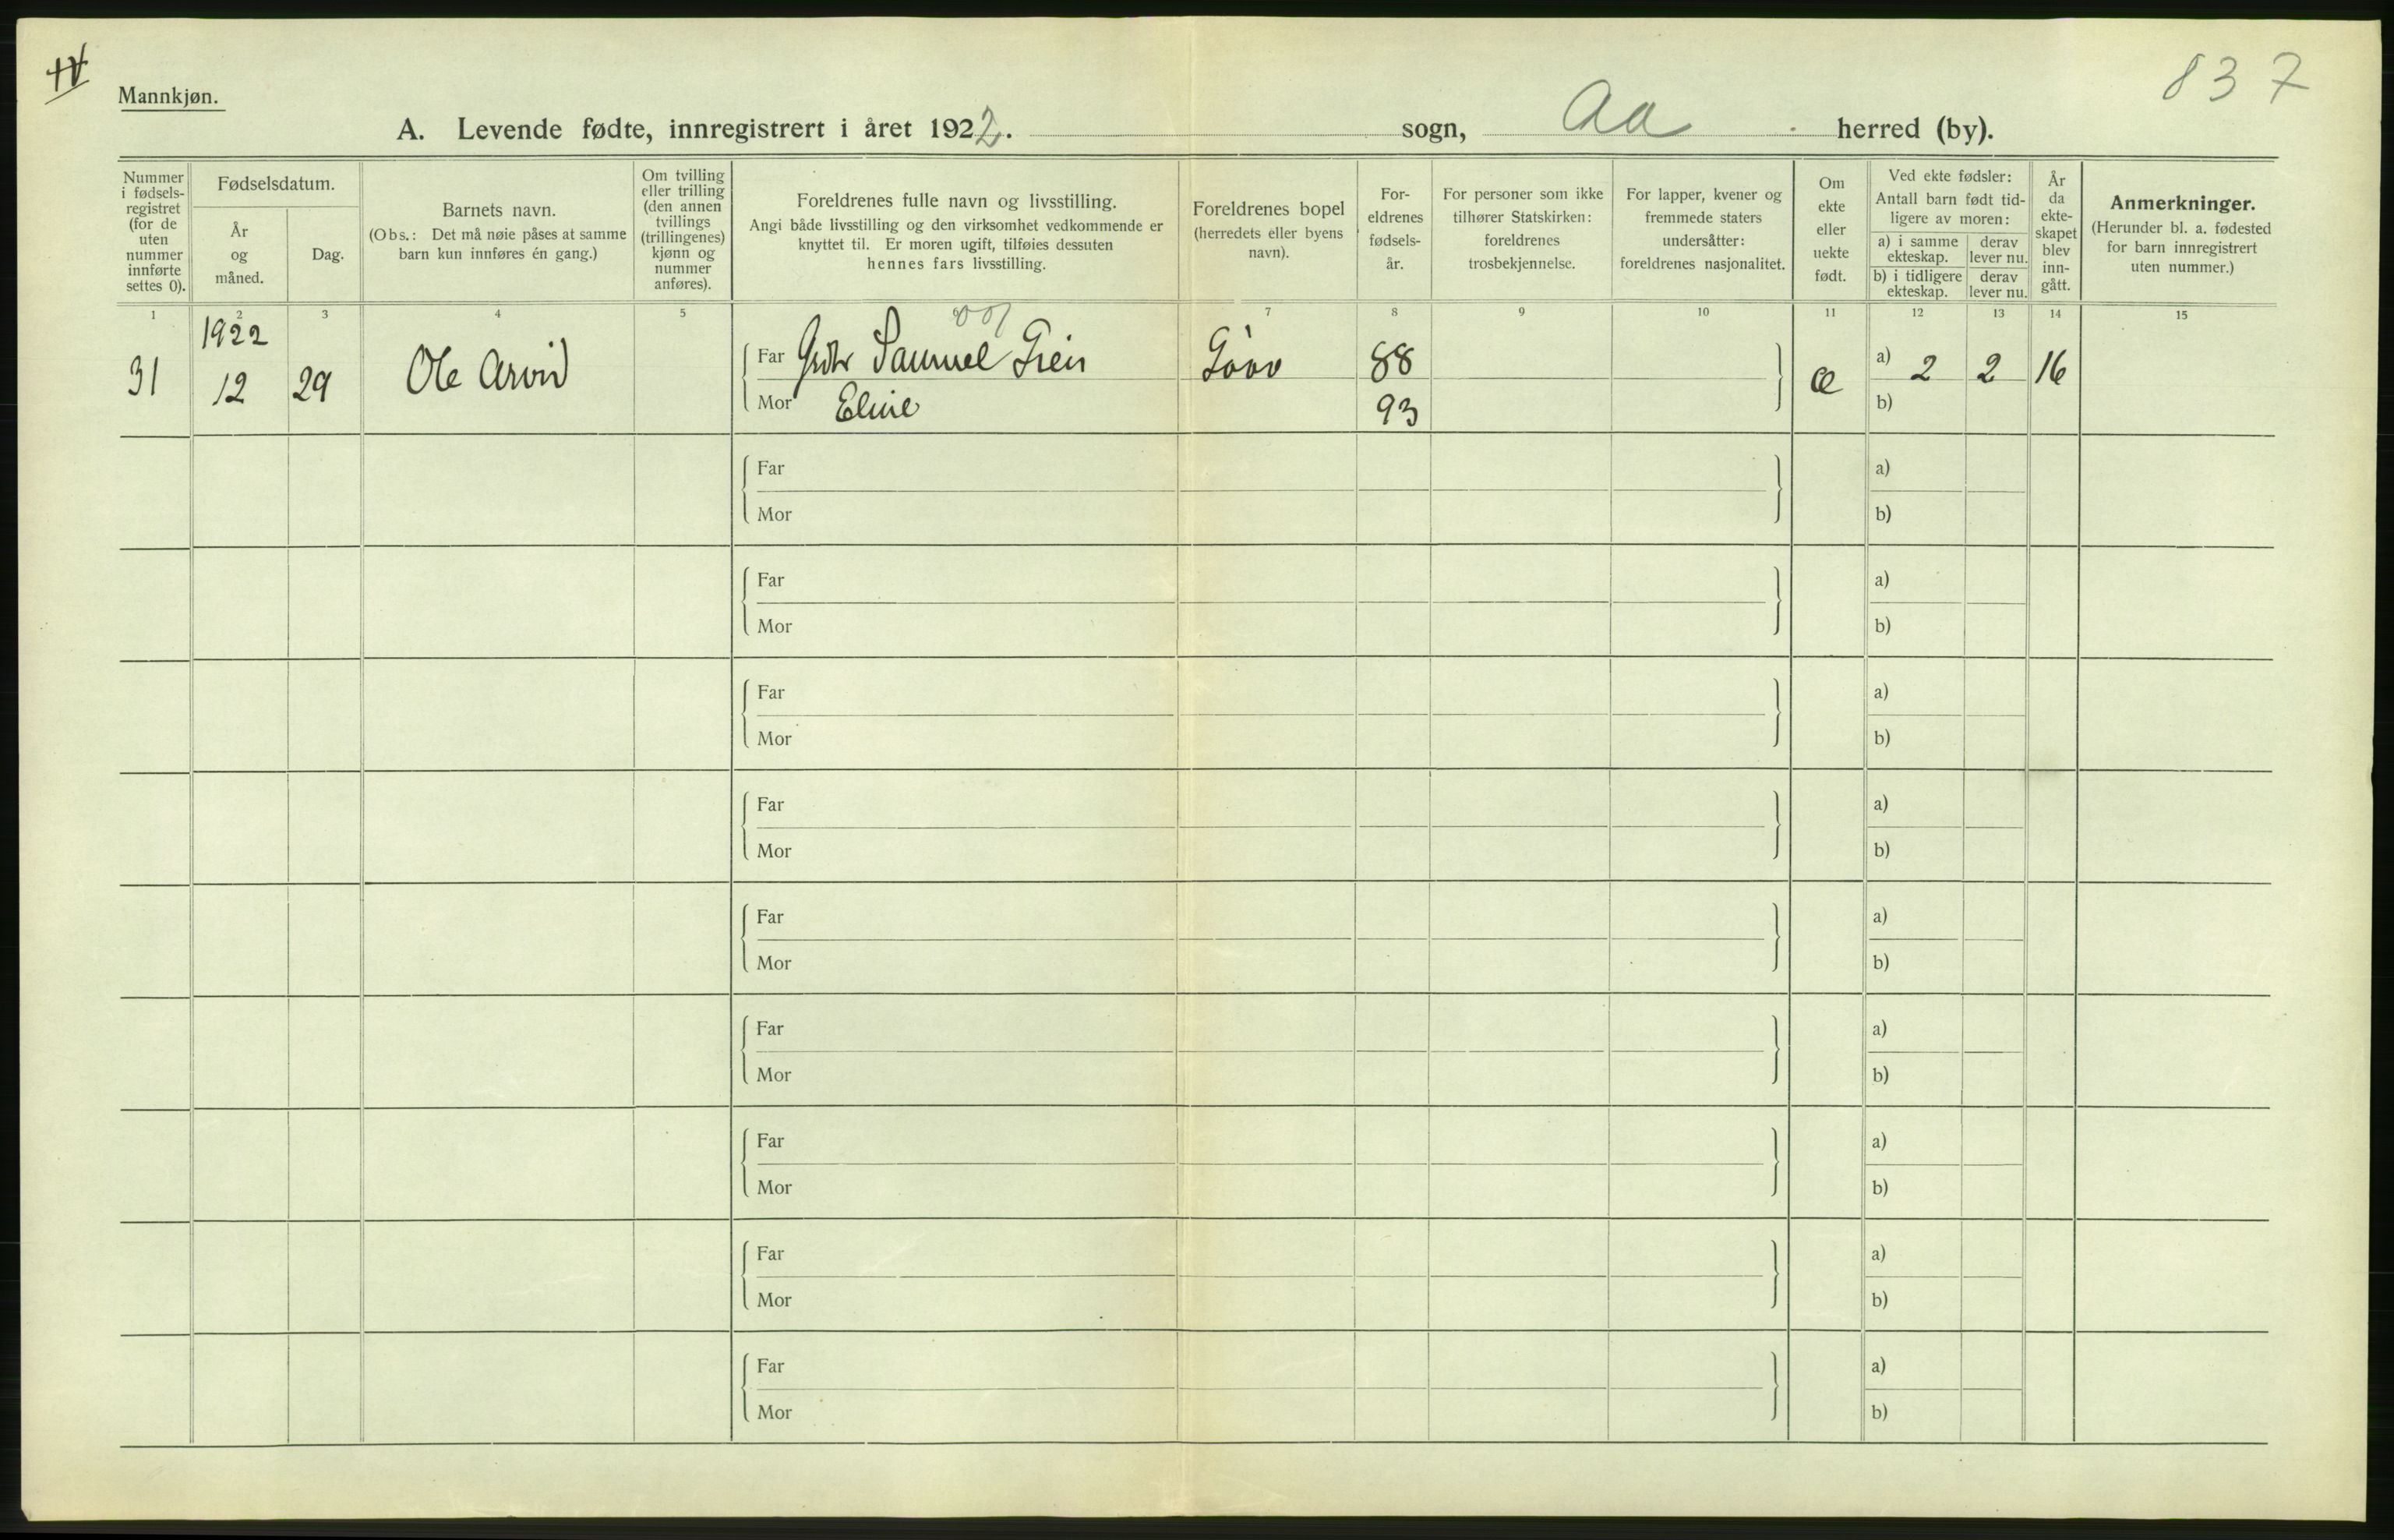 837
Mannkjøn.
A. Levende fødte, innregistrert i året 1922. sogn, Aa herred (by).
Nummer i fødsels- registret (for de uten nummer innførte settes 0).
Fødselsdatum.
År og måned.
Dag.
Barnets navn.
(Obs.: Det må nøie påses at samme barn kun innføres én gang.)
Om tvilling eller trilling (den annen tvillings (trillingenes) kjønn og nummer anføres).
Foreldrenes fulle navn og livsstilling.
Angi både livsstilling og den virksomhet vedkommende er knyttet til. Er moren ugift, tilføies dessuten hennes fars livsstilling.
Foreldrenes bopel
(herredets eller byens navn).
For- eldrenes fødsels- år.
For personer som ikke tilhører Statskirken: foreldrenes trosbekjennelse.
For lapper, kvener og fremmede staters undersåtter: foreldrenes nasjonalitet.
Om ekte eller uekte født.
Ved ekte fødsler:
Antall barn født tid- ligere av moren:
a) i samme ekteskap.
derav lever nu.
b) i tidligere ekteskap.
derav lever nu.
År da ekte- skapet blev inn- gått.
Anmerkninger.
(Herunder bl. a. fødested for barn innregistrert uten nummer.)
1 2 3 4 5 7 8 9 10 11 12 13 14 15
1922
31 12 29 Ole Arvid
Far Samuel 88
Mor Eline 93
a) 2 2 16
b)
Far a)
Mor b)
Far a)
Mor b)
Far a)
Mor b)
Far a)
Mor b)
Far a)
Mor b)
Far a)
Mor b)
Far a)
Mor b)
Far a)
Mor b)
Far a)
Mor b)